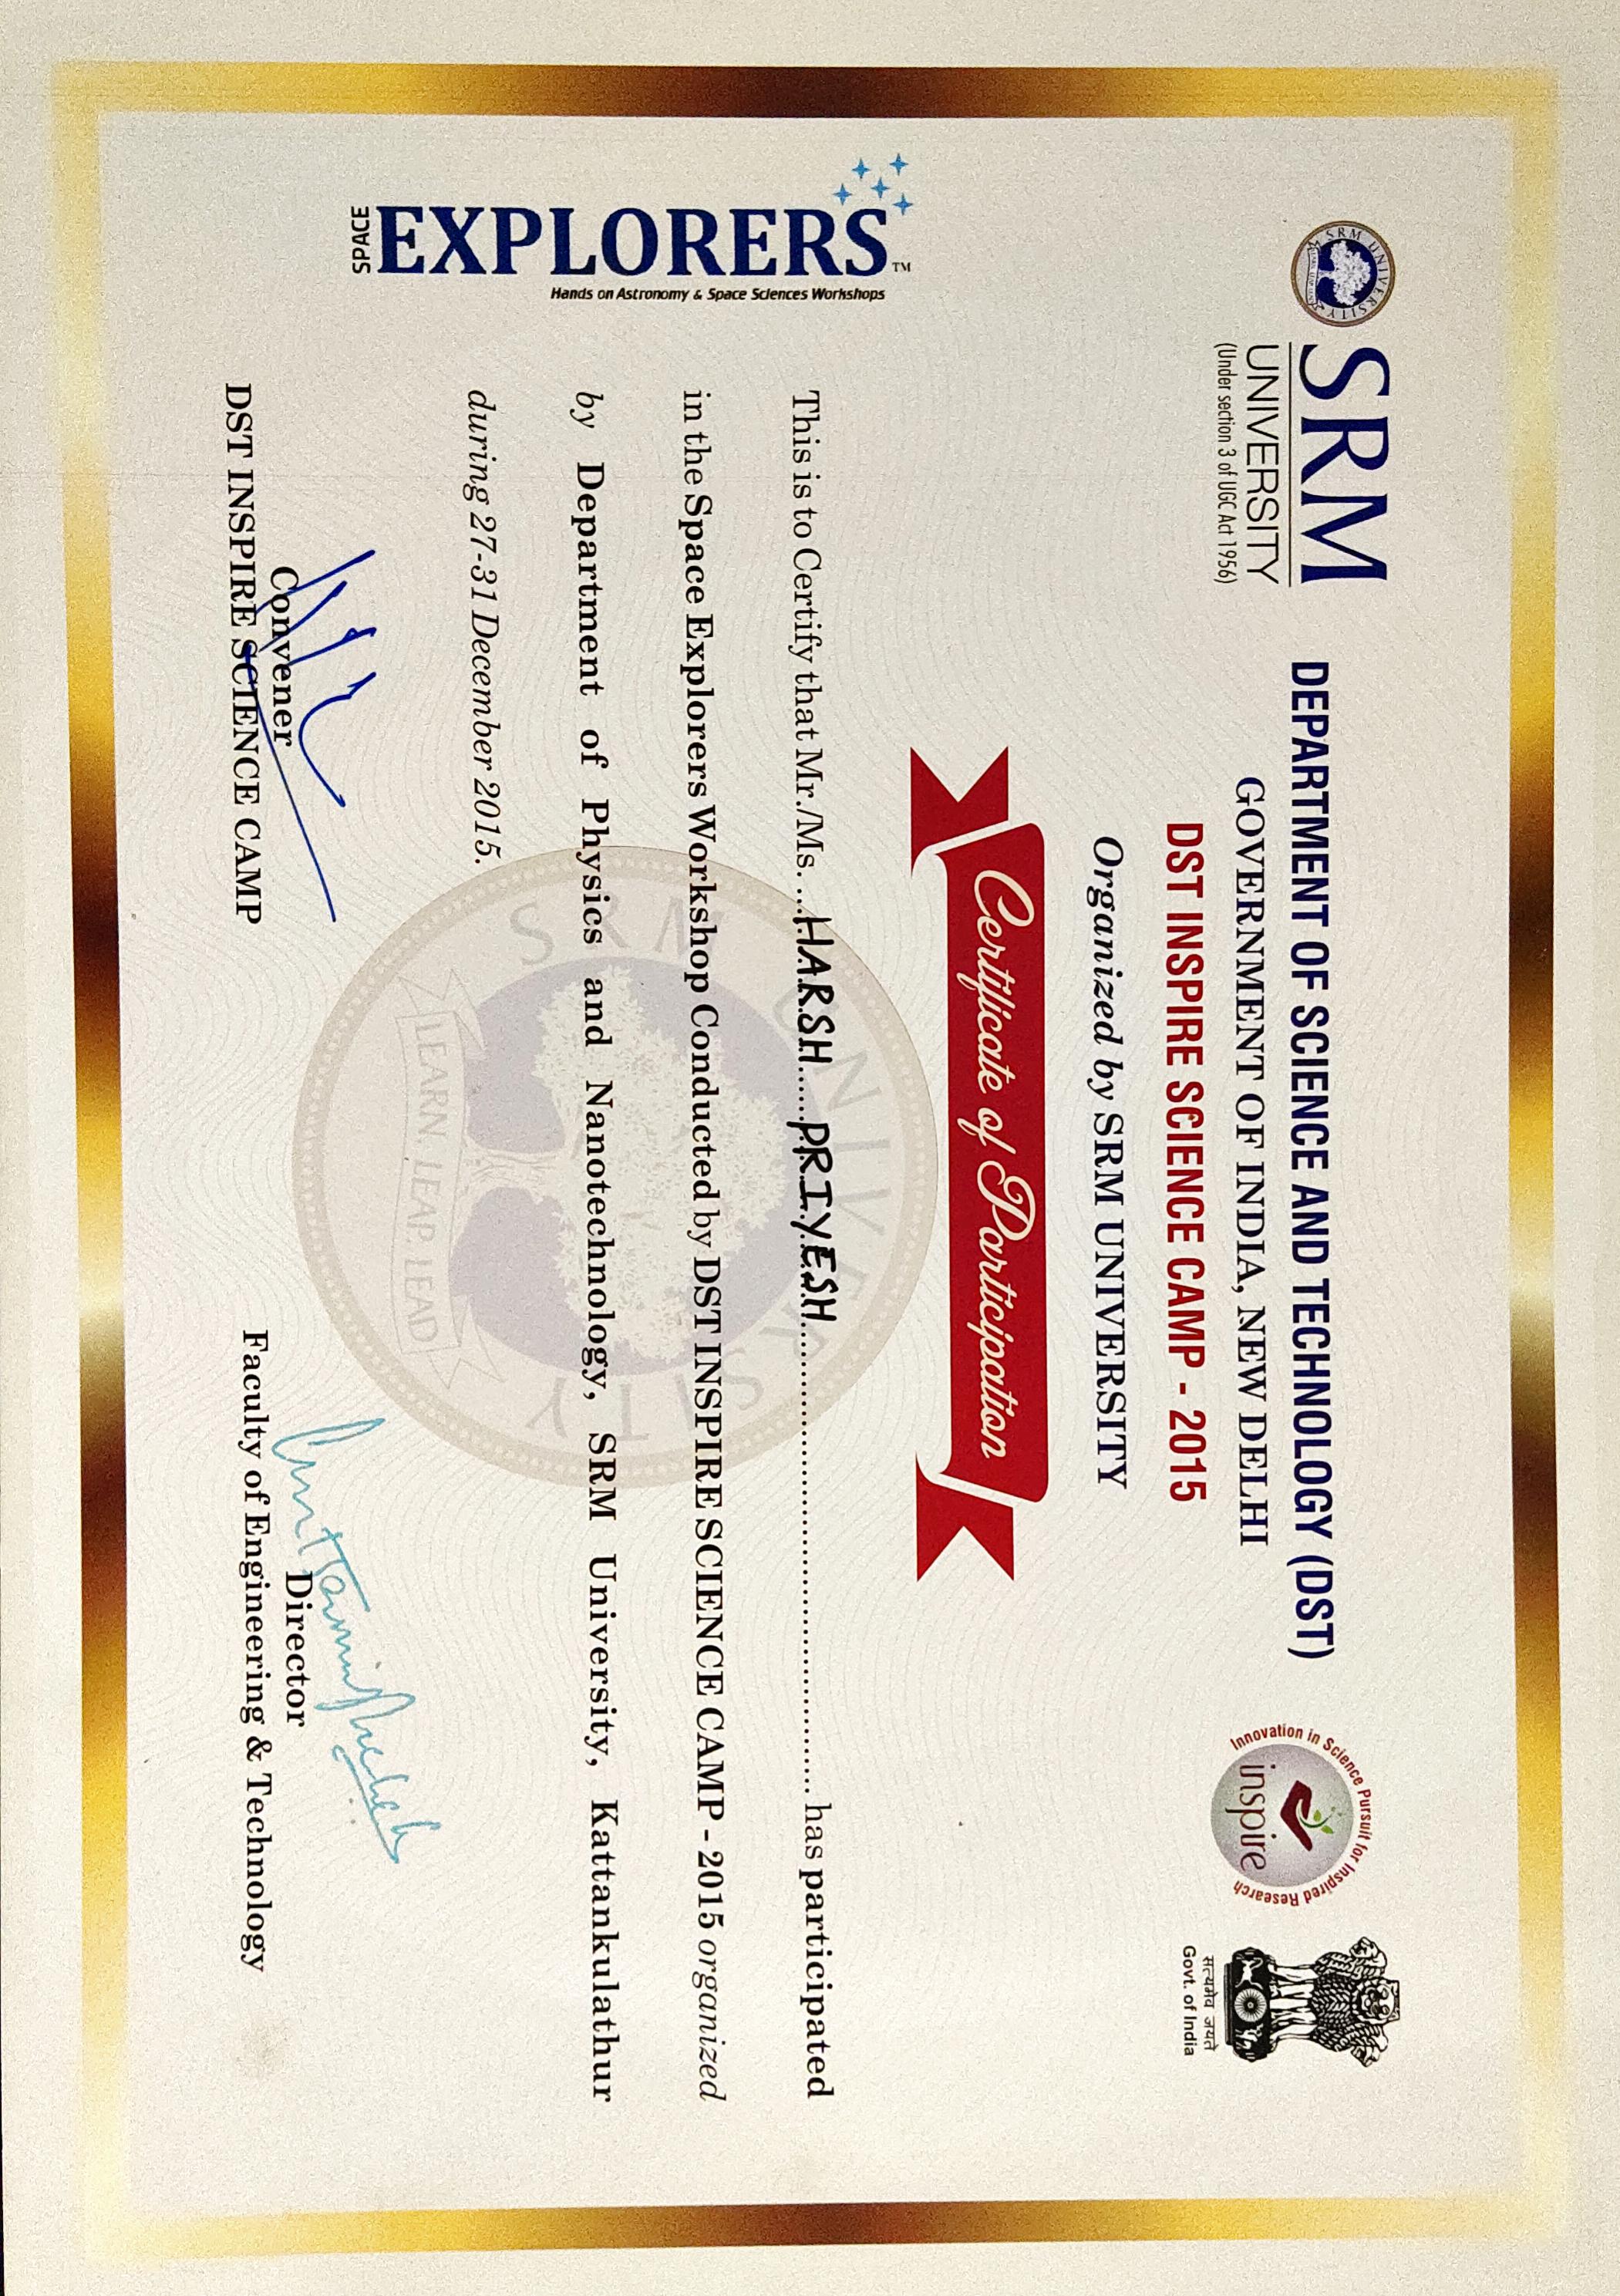 SRM UNIVERSITY
LEARN. LEAP. LEAD
SRM
UNIVERSITY
(Under section 3 of UGC Act 1956)
DEPARTMENT OF SCIENCE AND TECHNOLOGY (DST)
GOVERNMENT OF INDIA, NEW DELHI
DST INSPIRE SCIENCE CAMP - 2015
Organized by SRM UNIVERSITY
Innovation in Science Pursuit for Inspired Research
inspire
सत्यमेव जयते
Govt. of India
Certificate of Participation
SPACE
EXPLORERS TM
Hands on Astronomy & Space Sciences Workshops
This is to Certify that Mr./Ms. ...HARSH......PRIYESH............................................................ has participated
in the Space Explorers Workshop Conducted by DST INSPIRE SCIENCE CAMP - 2015 organized
by Department of Physics and Nanotechnology, SRM University, Kattankulathur
during 27-31 December 2015.
SRM UNIVERSITY
LEARN. LEAP. LEAD
Convener
DST INSPIRE SCIENCE CAMP
Director
Faculty of Engineering & Technology